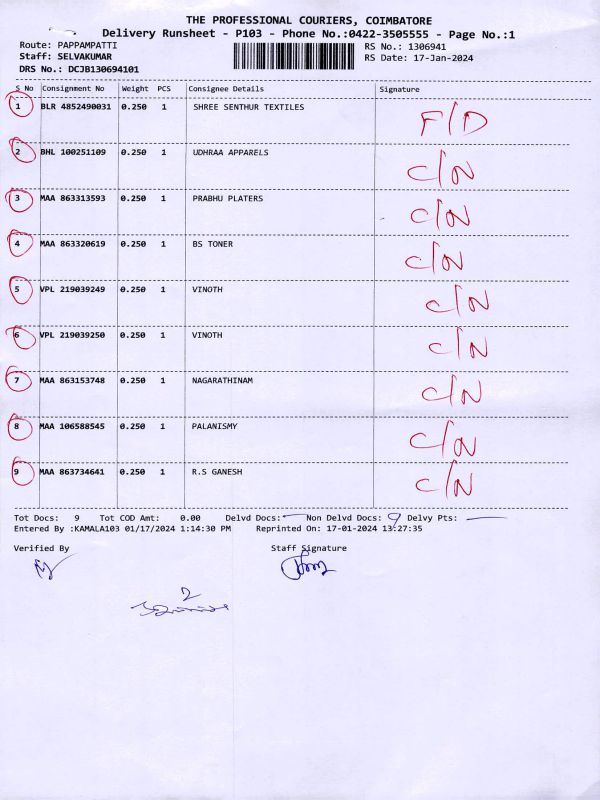 THE PROFESSIONAL COURIERS, COIMBATORE
Delivery Runsheet - P103 - Phone No.:0422-3505555 - Page No.:1
Route: PAPPAMPATTI RS No.: 1306941
Staff: SELVAKUMAR RS Date: 17-Jan-2024
DRS No.: DCJB130694101
S No Consignment No Weight PCS Consignee Details Signature
1 BLR 4852490031 0.250 1 SHREE SENTHUR TEXTILES F/D
2 BHL 100251109 0.250 1 UDHRAA APPARELS C/N
3 MAA 863313593 0.250 1 PRABHU PLATERS C/N
4 MAA 863320619 0.250 1 BS TONER C/N
5 VPL 219039249 0.250 1 VINOTH C/N
6 VPL 219039250 0.250 1 VINOTH C/N
7 MAA 863153748 0.250 1 NAGARATHINAM C/N
8 MAA 106588545 0.250 1 PALANISMY C/N
9 MAA 863734641 0.250 1 R.S GANESH C/N
Tot Docs: 9 Tot COD Amt: 0.00 Delvd Docs: — Non Delvd Docs: 9 Delvy Pts: —
Entered By :KAMALA103 01/17/2024 1:14:30 PM Reprinted On: 17-01-2024 13:27:35
Verified By Staff Signature
2